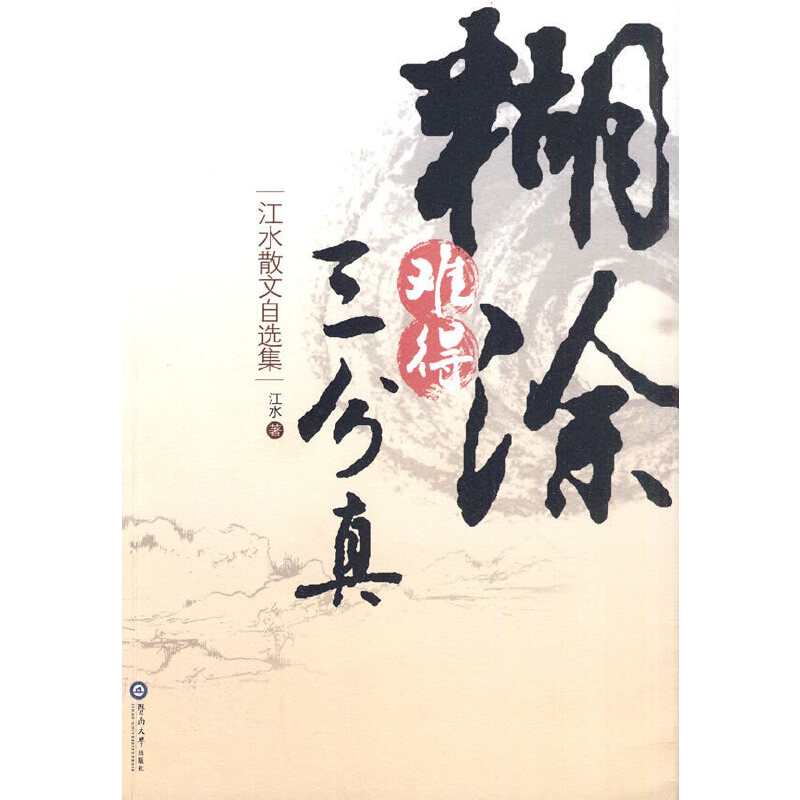 糊涂
难得
三分真
江水散文自选集
江水 著
暨南大学出版社
JINAN UNIVERSITY PRESS